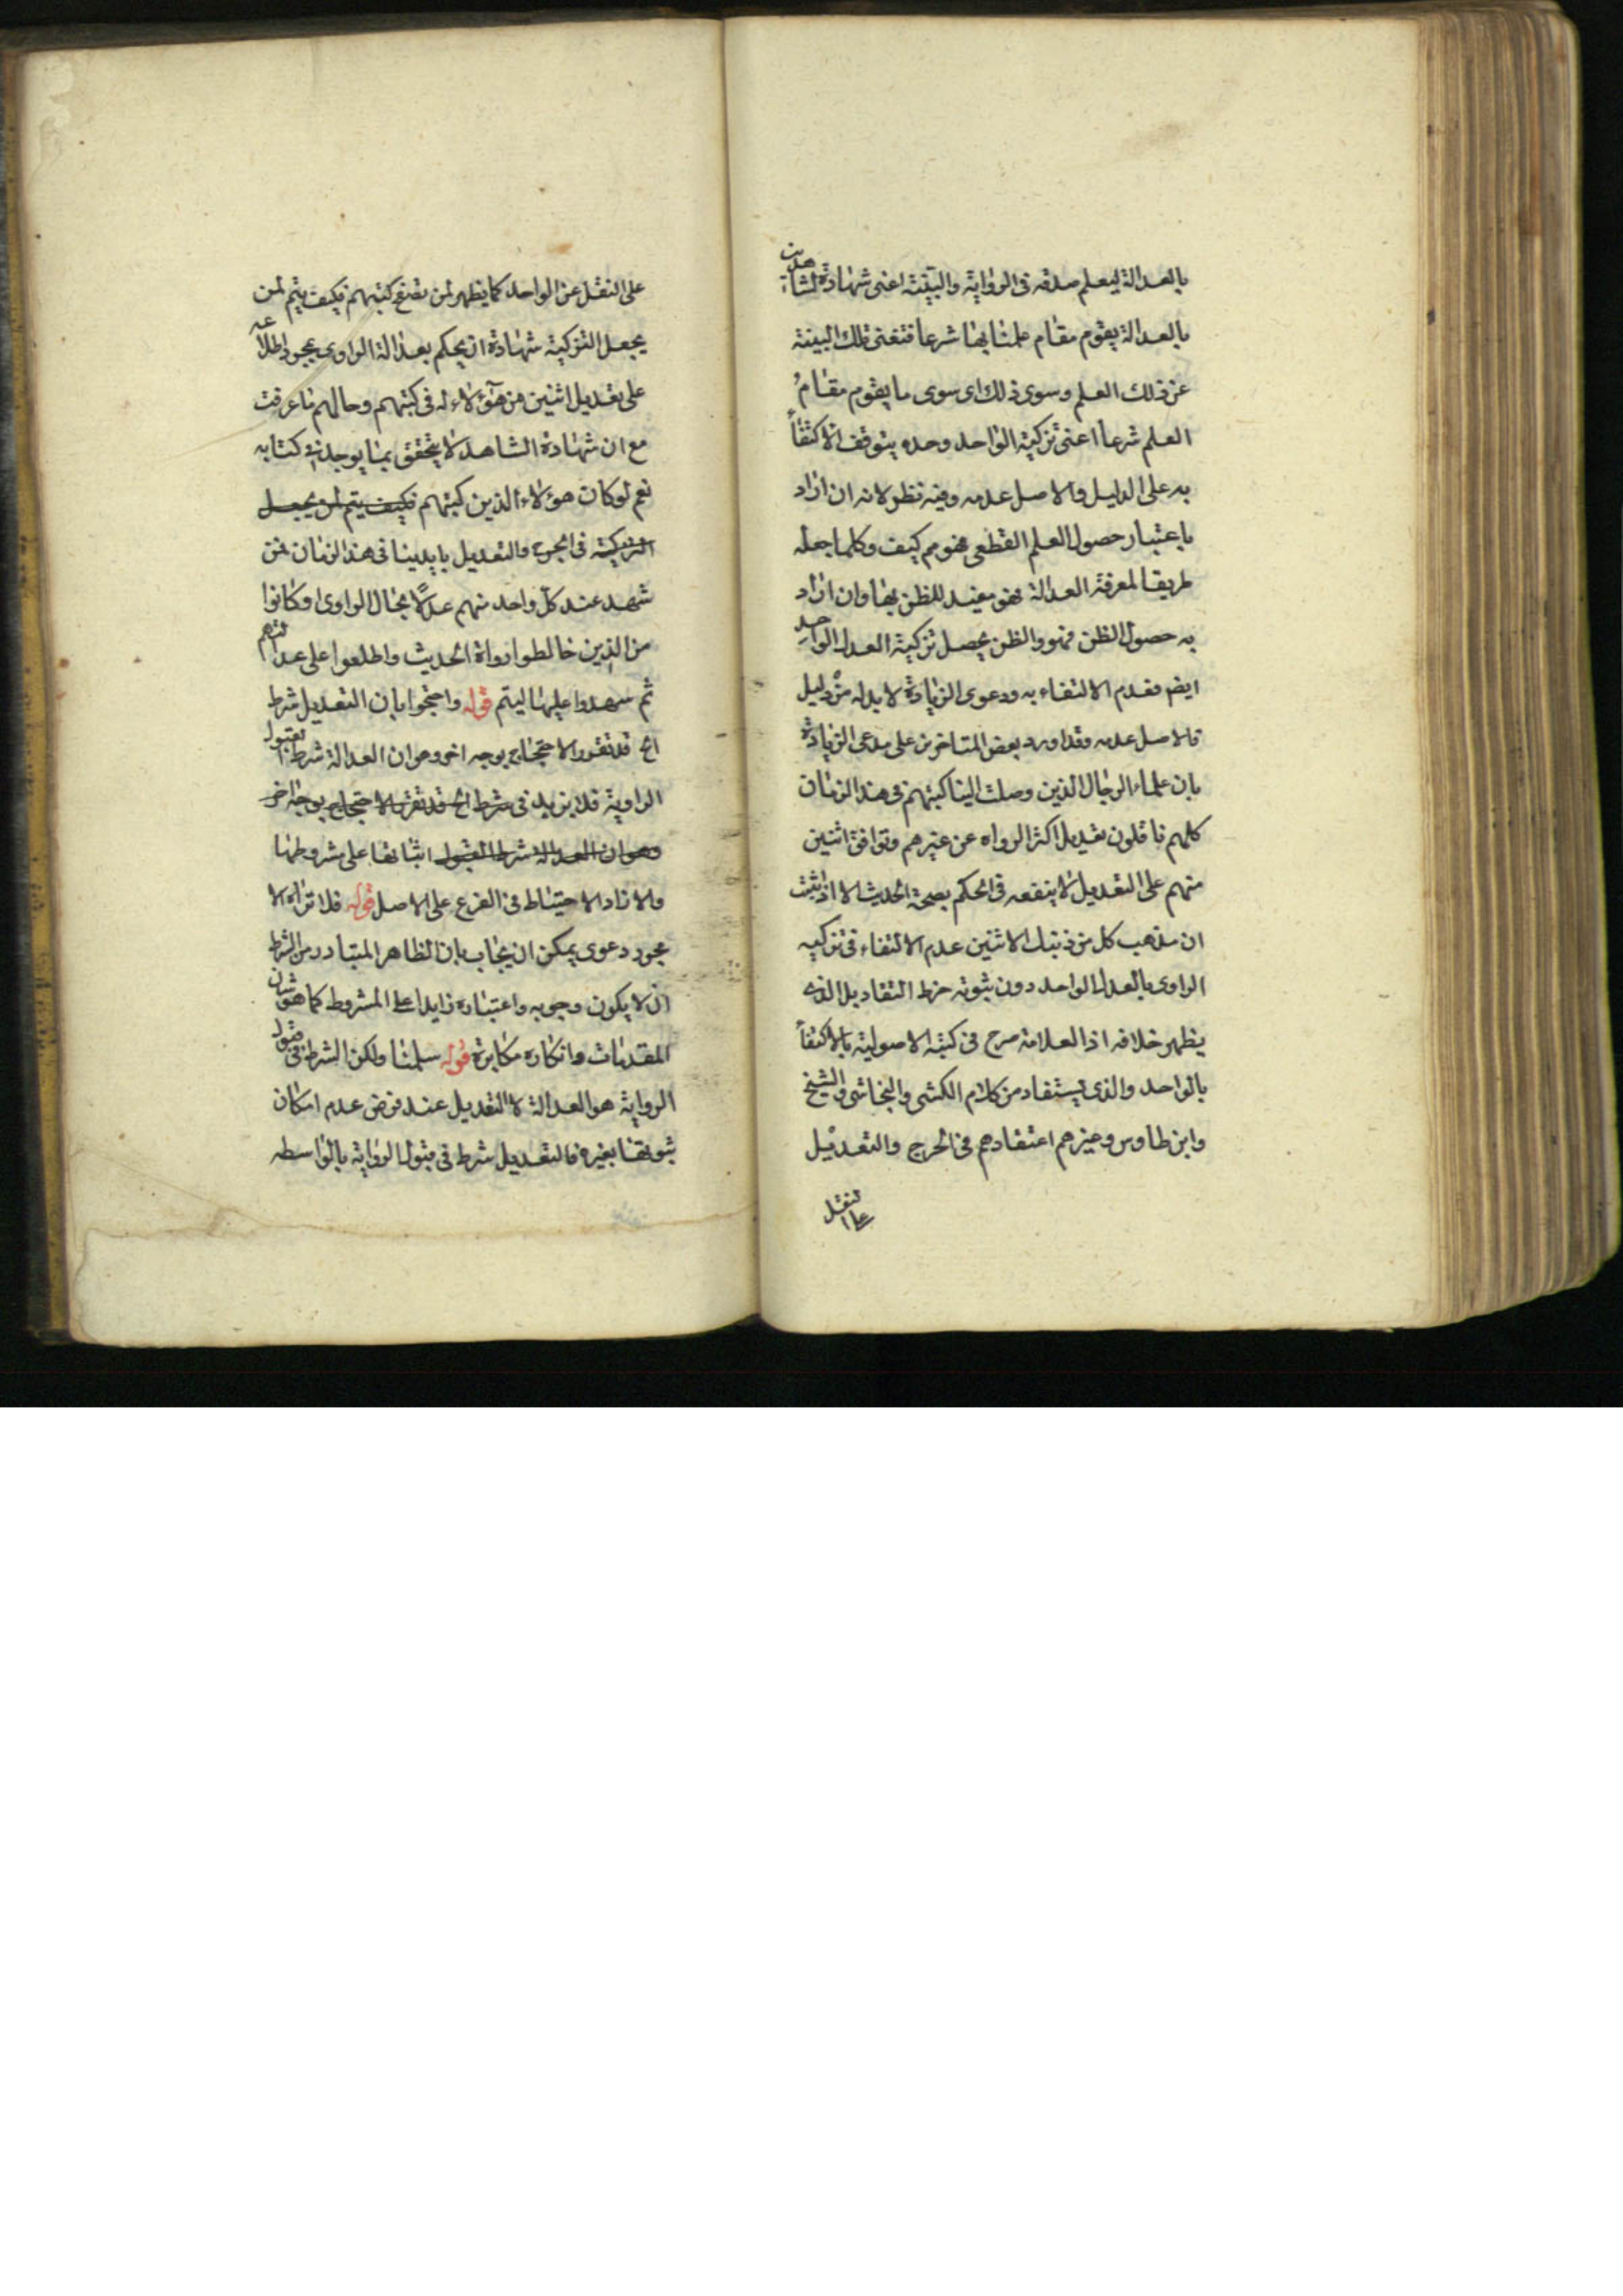 بالعدالة ليعلم صدقه فى الرواية والبينة اعنى شهادة الشاهدين
بالعدالة يقوم مقام علمنا بها شرعا فتغنى تلك البينة
عن ذلك العلم وسوى ذلك اى سوى ما يقوم مقام
العلم شرعا اعنى تزكية الواحد وحده يتوقف الاكتفاء
به على الدليل والاصل عدمه وفيه نظر لانه ان اراد
باعتبار حصول العلم القطعى فهو مم كيف وكلما جعله
طريقا لمعرفة العدالة فهو مفيد للظن بها وان اراد
به حصول الظن فهو والظن يحصل تزكية العدل الواحد
ايضا فعدم الاكتفاء به ودعوى الزيادة لا بد له من دليل
فالاصل عدمه وقد اورد بعض المتاخرين على مدعى الزيادة
بان علماء الرجال الذين وصلت الينا كتبهم فى هذا الزمان
كلهم ناقلون تعديل اكثر الرواه عن غيرهم وتوافق اثنين
منهم على التعديل لا ينفعه فى الحكم بصحة الحديث الا اذا ثبت
ان مذهب كل من ذينك الاثنين عدم الاكتفاء فى تزكيه
الراوى بالعدل الواحد دون ثبوته خرط القتاد بل الذى
يظهر خلافه اذ العلامة صرح فى كتبه الاصولية بالاكتفاء
بالواحد والذى يستفاد من كلام الكشى والنجاشى والشيخ
وابن طاوس وغيرهم اعتقادهم فى الجرح والتعديل
على النقل
على النقل عن الواحد كما يظهر لمن تصفح كتبهم فكيف يتم لمن
يجعل التزكية شهادة ان يحكم بعدالة الراوى بمجرد اطلاعه
على تعديل اثنين من هؤلاء له فى كتبهم وحالهم ما عرفت
مع ان شهادة الشاهد لا يتحقق بما يوجد فى كتابه
نعم لو كان هؤلاء الذين كتبهم فكيف يتم لمن يجعل
التزكية فى الجرح والتعديل بايدينا فى هذا الزمان ممن
شهد عند كل واحد منهم عدلا بحال الراوى او كانوا
من الذين خالطوا رواة الحديث واطلعوا على عدالتهم
ثم شهدوا عليها ليتم قوله واحتجوا بان التعديل شرط
الخ قد تقرر الاحتجاج بوجه اخر وهو ان العدالة شرط لقبول
الراوية فلا يزيد فى شرط الخ قد تقرر الاحتجاج بوجه اخر
وهو ان العدالة شرط القبول اثباتها على مشروطها
والا زاد الاحتياط فى الفرع على الاصل قوله فلا تراه الا
مجرد دعوى يمكن ان يجاب بان الظاهر المتبادر من الشرط
ان لا يكون وجوبه واعتباره زايدا على المشروط كما هو شان
المقدمات وانكاره مكابرة قوله سلمنا ولكن الشرط فى قبول
الرواية هو العدالة لا التعديل عند فرض عدم امكان
ثبوتها بغيره فالتعديل شرط فى قبول الرواية بالواسطه